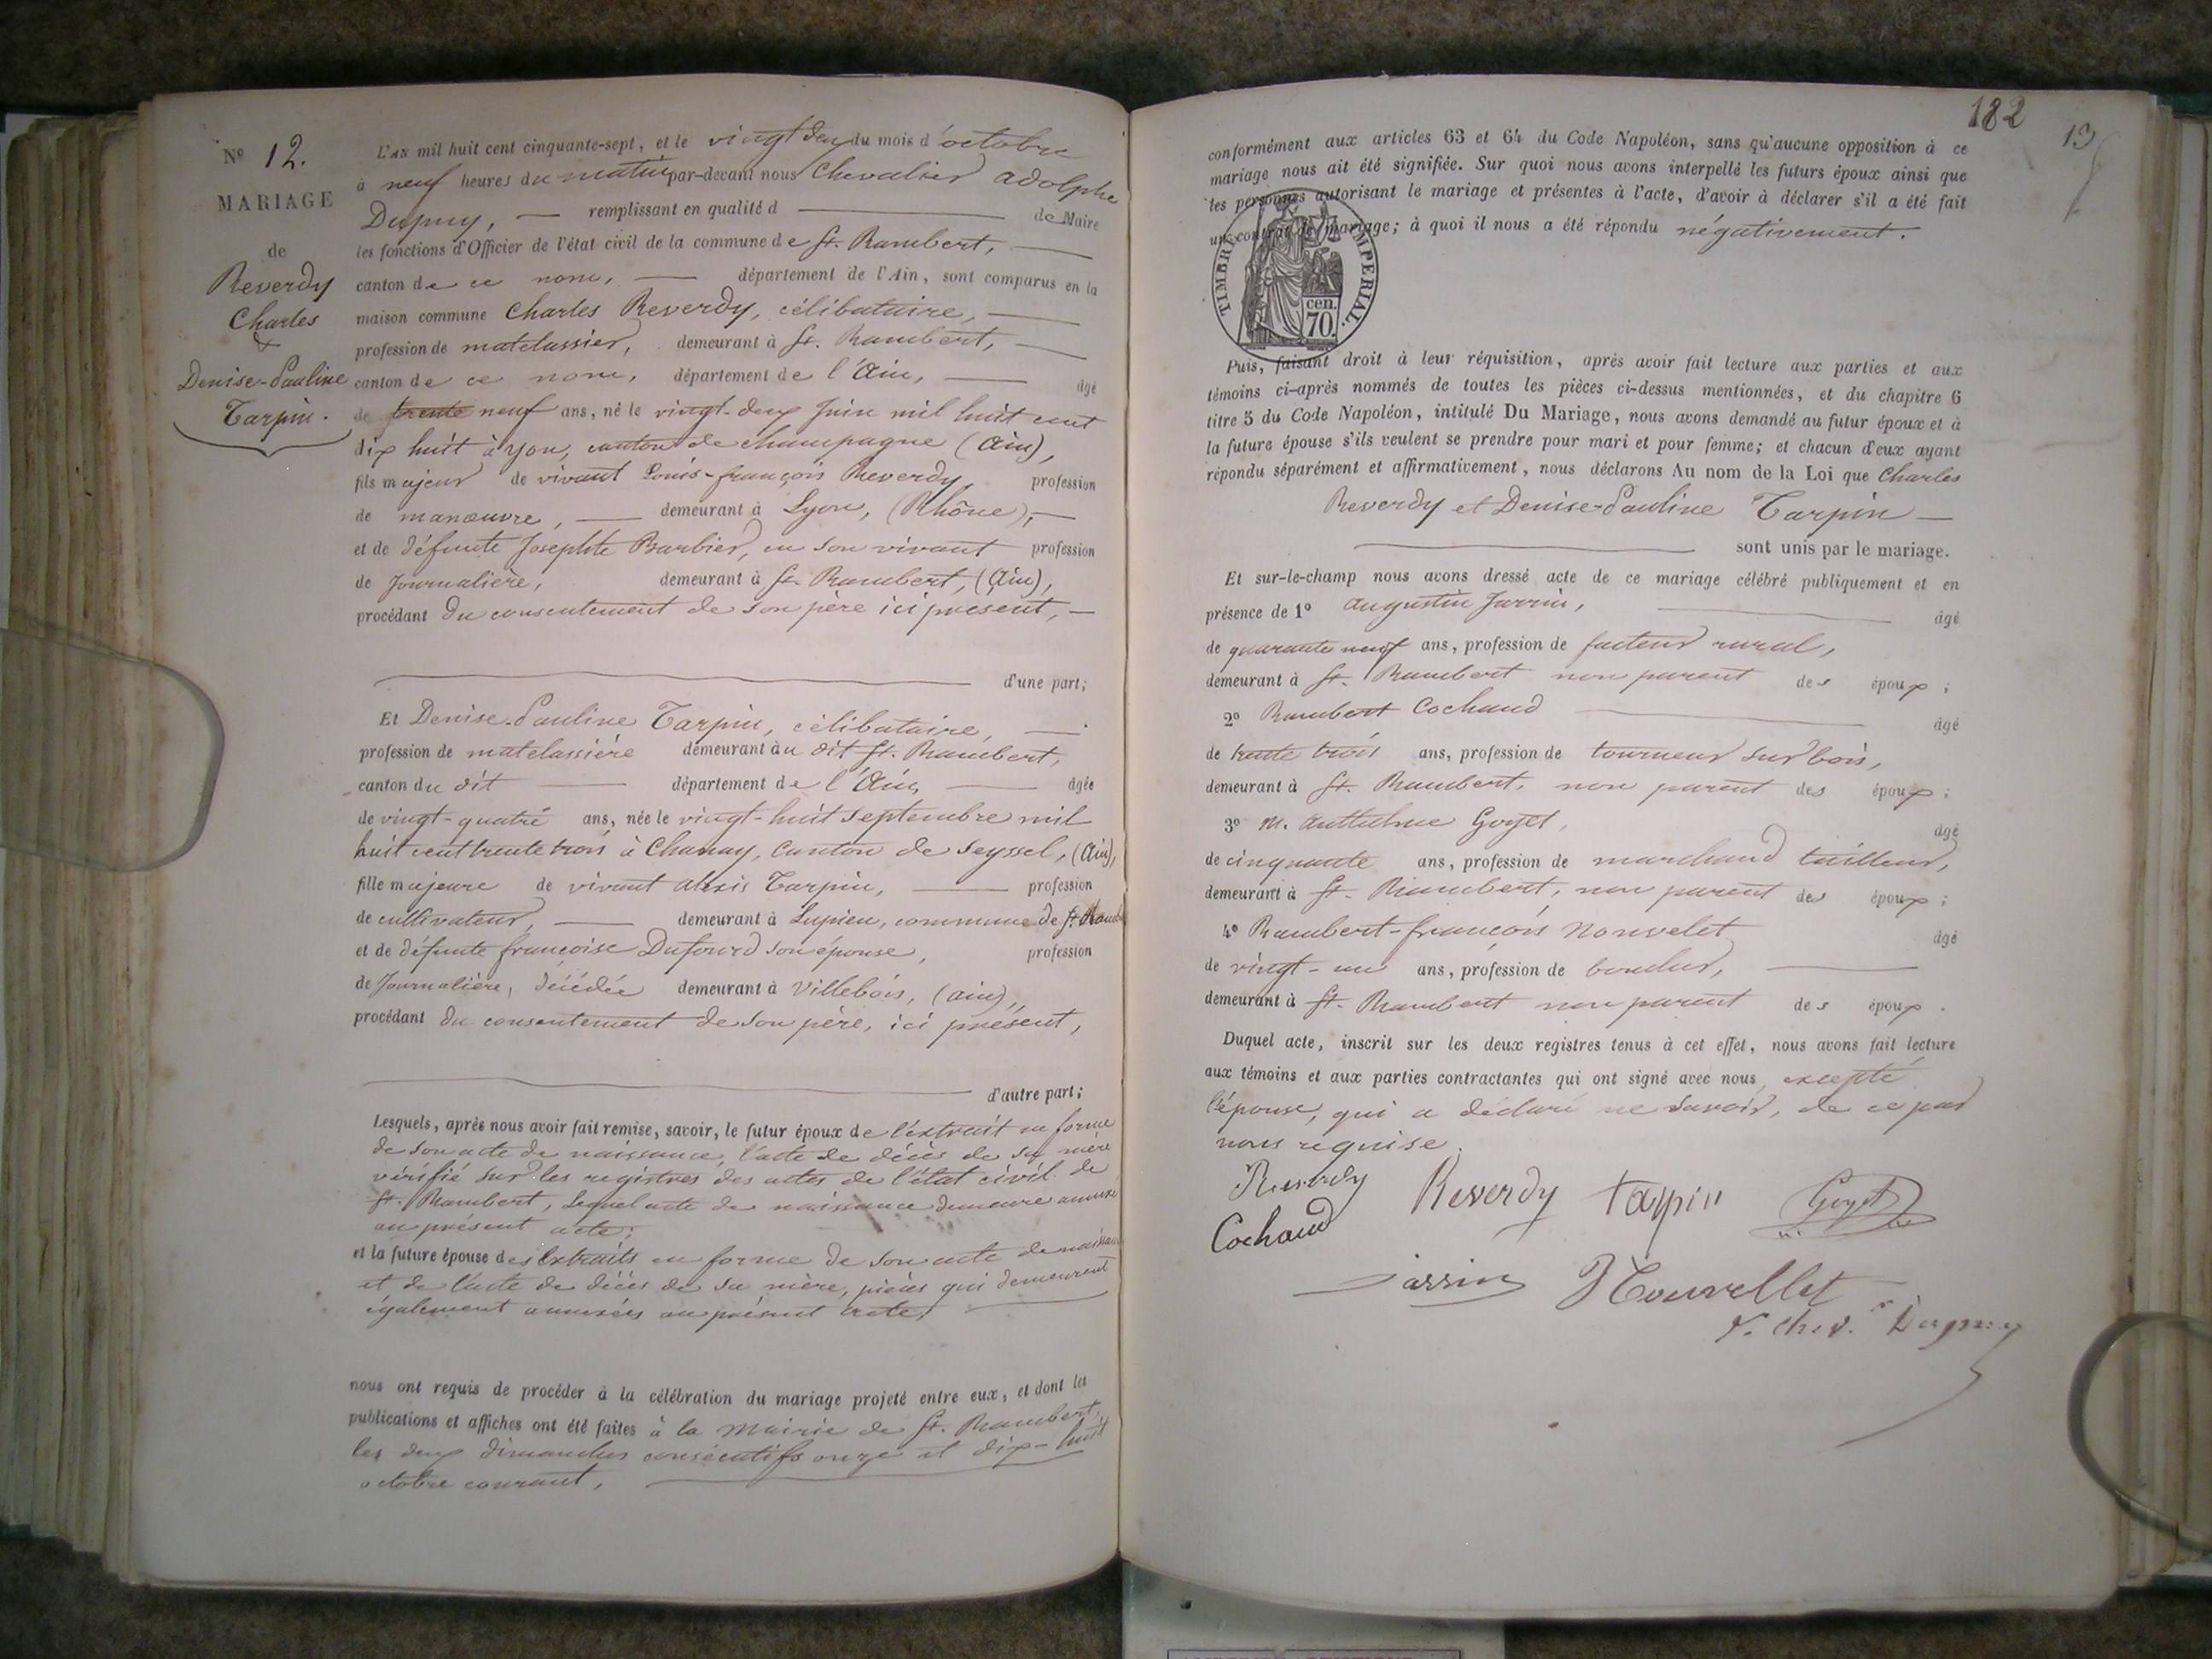 Nº 12.
MARIAGE
de
Reverdy
Charles
&
Denise-Pauline
Tarpin.
L'AN mil huit cent cinquante-sept, et le vingt deux du mois d'octobre
à neuf heures du matin par-devant nous Chevalier Adolphe
Dupuy, remplissant en qualité d de Maire
les fonctions d'Officier de l'état civil de la commune de St. Rambert,
canton de ce nom, département de l'Ain, sont comparus en la
maison commune Charles Reverdy, célibataire,
profession de matelassier, demeurant à St. Rambert,
canton de ce nom, département de l'Ain, âgé
de trente neuf ans, né le vingt-deux Juin mil huit cent
dix huit à yon, canton de champagne (Ain),
fils majeur de vivant Louis-françois Reverdy, profession
de manœuvre, demeurant à Lyon, (Rhône),
et de défunte Josephte Barbier, en son vivant profession
de Journalière, demeurant à St. Rambert, (Ain),
procédant du consentement de son père ici présent,
d'une part;
Et Denise-Pauline Tarpin, célibataire,
profession de matelassière demeurant au dit St. Rambert,
canton du dit département de l'Ain, âgée
de vingt-quatre ans, née le vingt-huit septembre mil
huit cent trente trois à Chanay, Canton de Seyssel, (Ain),
fille majeure de vivant alexis Tarpin, profession
de cultivateur, demeurant à Lupieu, commune de St. Ramb
et de défunte françoise Dufourd son épouse, profession
de Journalière, décédée demeurant à Villebois, (ain),
procédant du consentement de son père, ici présent,
d'autre part;
Lesquels, après nous avoir fait remise, savoir, le futur époux de l'extrait en forme
de son acte de naissance, l'acte de décès de sa mère
vérifié sur les registres des actes de l'état civil de
St. Rambert, lequel acte de naissance demeure annexé
au présent acte;
et la future épouse des extraits en forme de son acte de naissance
et de l'acte de décès de sa mère, pièces qui demeurent
également annexées au présent acte,
nous ont requis de procéder à la célébration du mariage projeté entre eux, et dont les
publications et affiches ont été faites à la Mairie de St. Rambert,
les deux dimanches consécutifs onze et dix-huit
octobre courant,
182
13
conformément aux articles 63 et 64 du Code Napoléon, sans qu'aucune opposition à ce
mariage nous ait été signifiée. Sur quoi nous avons interpellé les futurs époux ainsi que
les personnes autorisant le mariage et présentes à l'acte, d'avoir à déclarer s'il a été fait
un contrat de mariage; à quoi il nous a été répondu négativement.
TIMBRE IMPERIAL.
cen.
70.
Puis, faisant droit à leur réquisition, après avoir fait lecture aux parties et aux
témoins ci-après nommés de toutes les pièces ci-dessus mentionnées, et du chapitre 6
titre 5 du Code Napoléon, intitulé Du Mariage, nous avons demandé au futur époux et à
la future épouse s'ils veulent se prendre pour mari et pour femme; et chacun d'eux ayant
répondu séparément et affirmativement, nous déclarons Au nom de la Loi que Charles
Reverdy et Denise-Pauline Tarpin
sont unis par le mariage.
Et sur-le-champ nous avons dressé acte de ce mariage célébré publiquement et en
présence de 1º Augustin Jarrin, âgé
de quarante neuf ans, profession de facteur rural,
demeurant à St. Rambert non parent des époux;
2º Rambert Cochaud âgé
de trente trois ans, profession de tourneur sur bois,
demeurant à St. Rambert, non parent des époux;
3º M. Anthelme Goyet, âgé
de cinquante ans, profession de marchand tailleur,
demeurant à St. Rambert, non parent des époux;
4º Rambert-françois Nouvelet âgé
de vingt-un ans, profession de
demeurant à St. Rambert non parent des époux.
Duquel acte, inscrit sur les deux registres tenus à cet effet, nous avons fait lecture
aux témoins et aux parties contractantes qui ont signé avec nous, excepté
l'épouse, qui a déclaré ne savoir, de ce par
nous requise.
Reverdy Reverdy tarpin Goyet
Cochaud
Jarrin Nouvellet
Dupuy